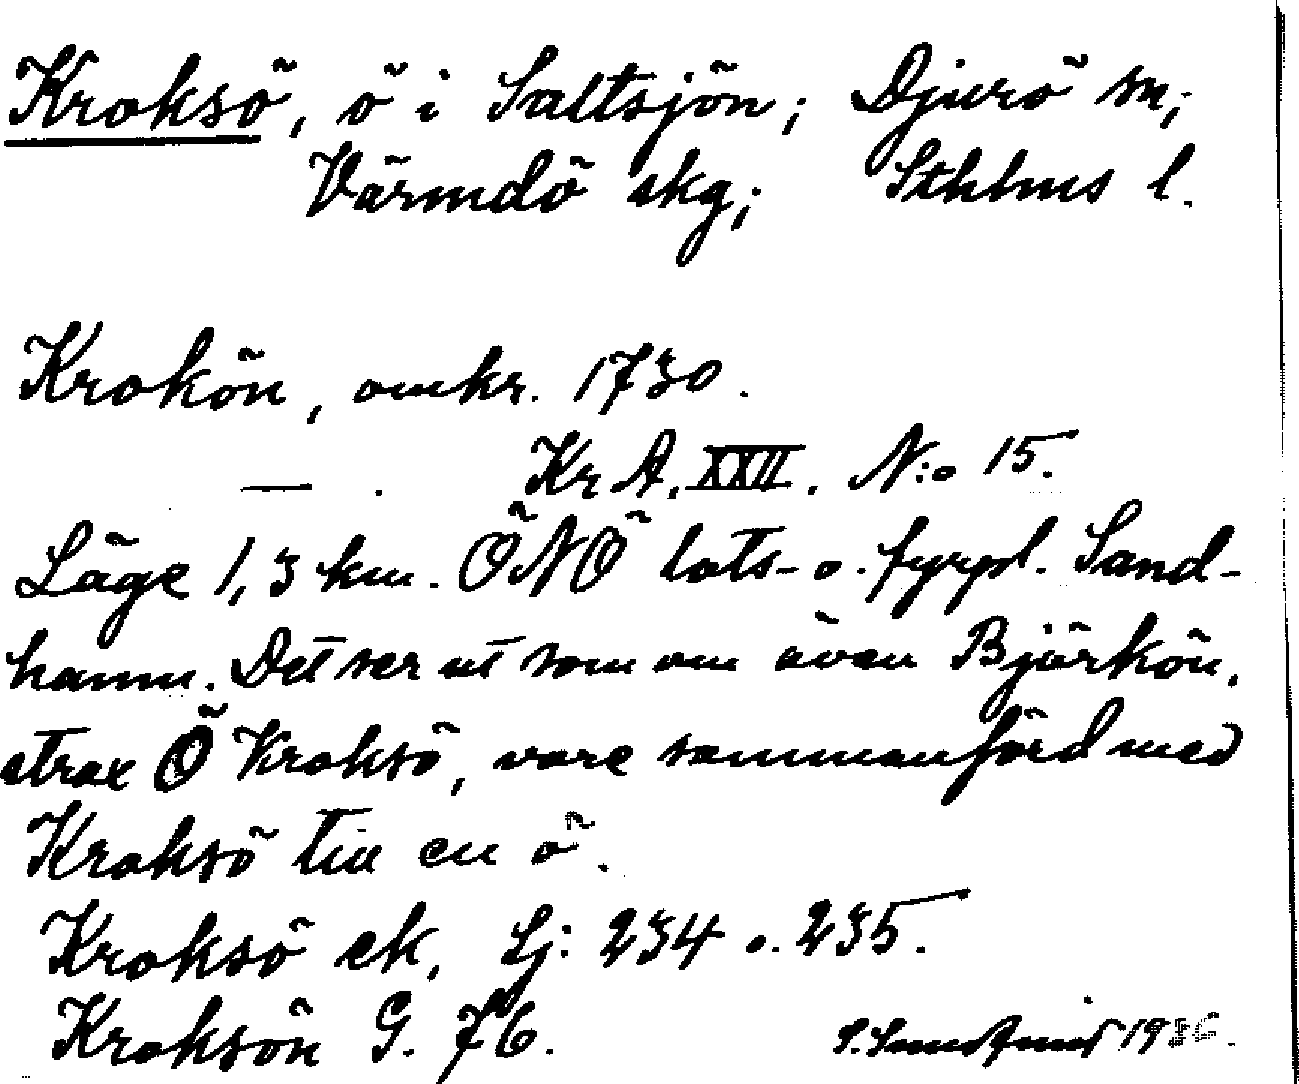 Kroksö, ö i Saltsjön; Djurö sn;
Värmdö skg; Sthlms l.
Krokön, omkr. 1730.
— . Kr A. XXII. N:o 15.
Läge 1,3 km. ÖNÖ lots- o. fyrpl. Sand-
hamn. Det ser ut som om även Björkön,
strax Ö Kroksö, vore sammanförd med
Kroksö till en ö.
Kroksö ek, Sj: 234 o. 235.
Kroksön G. 76.